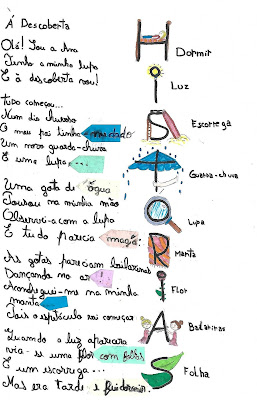 A Descoberta
Olá! Sou a Ana
Tenho a minha lupa
E à descoberta vou!
Tudo começou...
Num dia chuvoso
O meu pai tinha
Um novo guarda-chuva
E uma lupa...
Uma gota de água
Pousou na minha mão
Observei-a com a lupa
E tudo parecia magia.
As gotas pareciam bailarinas
Dançando no ar
Aconcheguei-me na minha
manta
Pois o espetáculo vai começar
Quando a luz aparecera
via-se uma flor com folhas
E um escorrega...
Mas era tarde e fui dormir.
H
I
S
T
Ó
R
I
A
S
Dormir
Luz
Escorrega
Guarda-chuva
Lupa
Manta
Flor
Bailarinas
Folha